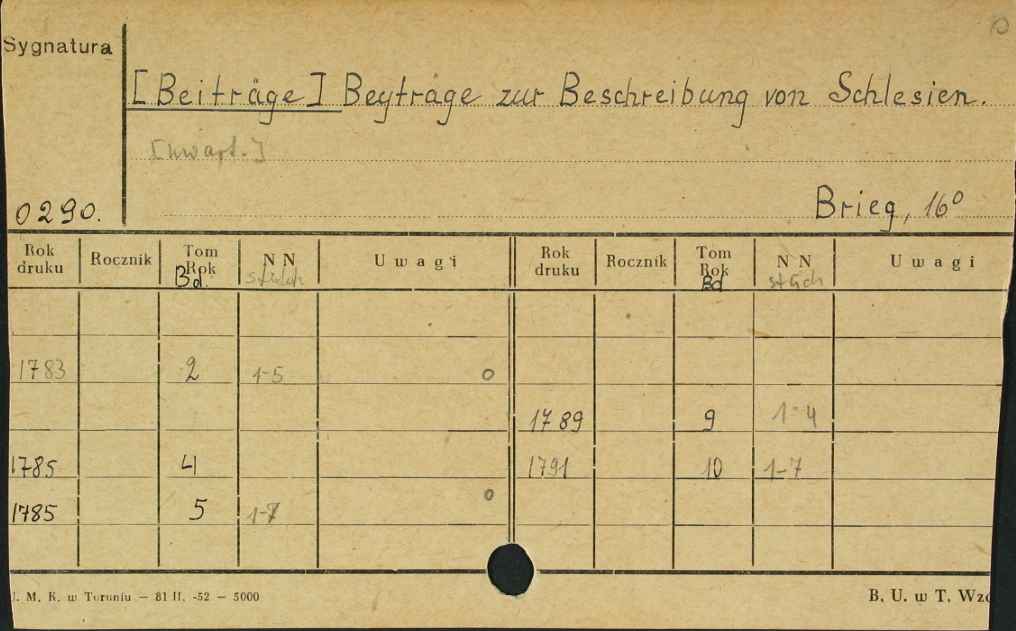 Sygnatura
[Beiträge] Beyträge zur Beschreibung von Schlesien.
[kwart.]
0290.
Brieg, 16°
Rok druku Rocznik Tom Rok Bd. NN stück Uwagi Rok druku Rocznik Tom Rok Bd NN stück Uwagi
1783 2 1-5 o
1789 9 1-4
1785 4 1791 10 1-7
1785 5 1-7 o
U. M. K. w Toruniu — 81 II. -52 — 5000
B. U. w T. Wzó